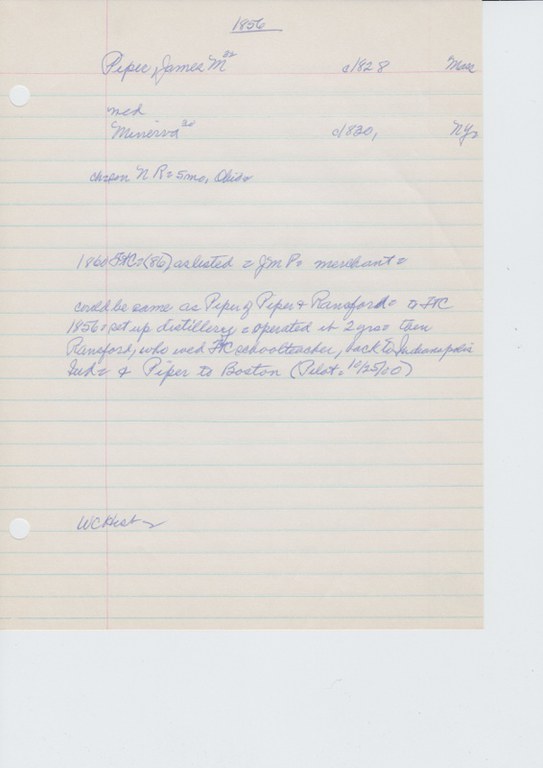 1856
Piper, James M 32 c1828 Mass
wed
Minerva 30 c1830, NY
chosen N R = 5mo, Ohio
1860 FtC = (86) as listed = J M P = merchant =
could be same as Piper of Piper & Ransford = to FtC
1856 = set up distillery = operated it 2 yrs = then
Ransford, who wed FtC schoolteacher, back to Indianapolis
Ind = & Piper to Boston (Pilot = 10/25/00)
WCHist